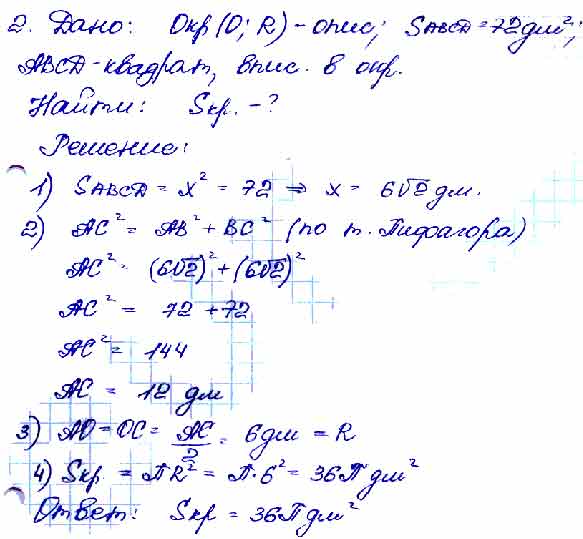 2. Дано: Окр(O; R) - опис; SABCD = 72 дм²;
ABCD - квадрат, впис. в окр.
Найти: Sкр. - ?
Решение:
1) SABCD = x² = 72 ⇒ x = 6√2 дм.
2) AC² = AB² + BC² (по т. Пифагора)
AC² = (6√2)² + (6√2)²
AC² = 72 + 72
AC² = 144
AC = 12 дм
3) AO = OC = AC/2 = 6 дм = R
4) Sкр = πR² = π·6² = 36π дм²
Ответ: Sкр = 36π дм²